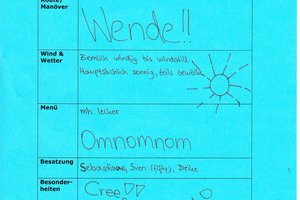 Route/
Manöver
Wende!!
Wind &
Wetter
Ziemlich windig bis windstill
Hauptsächlich sonnig, teils bewölkt
Menü
mh lecker
Omnomnom
Besatzung
Sebastian, Sven (fifty), Deike
Besonder-
heiten
Cree